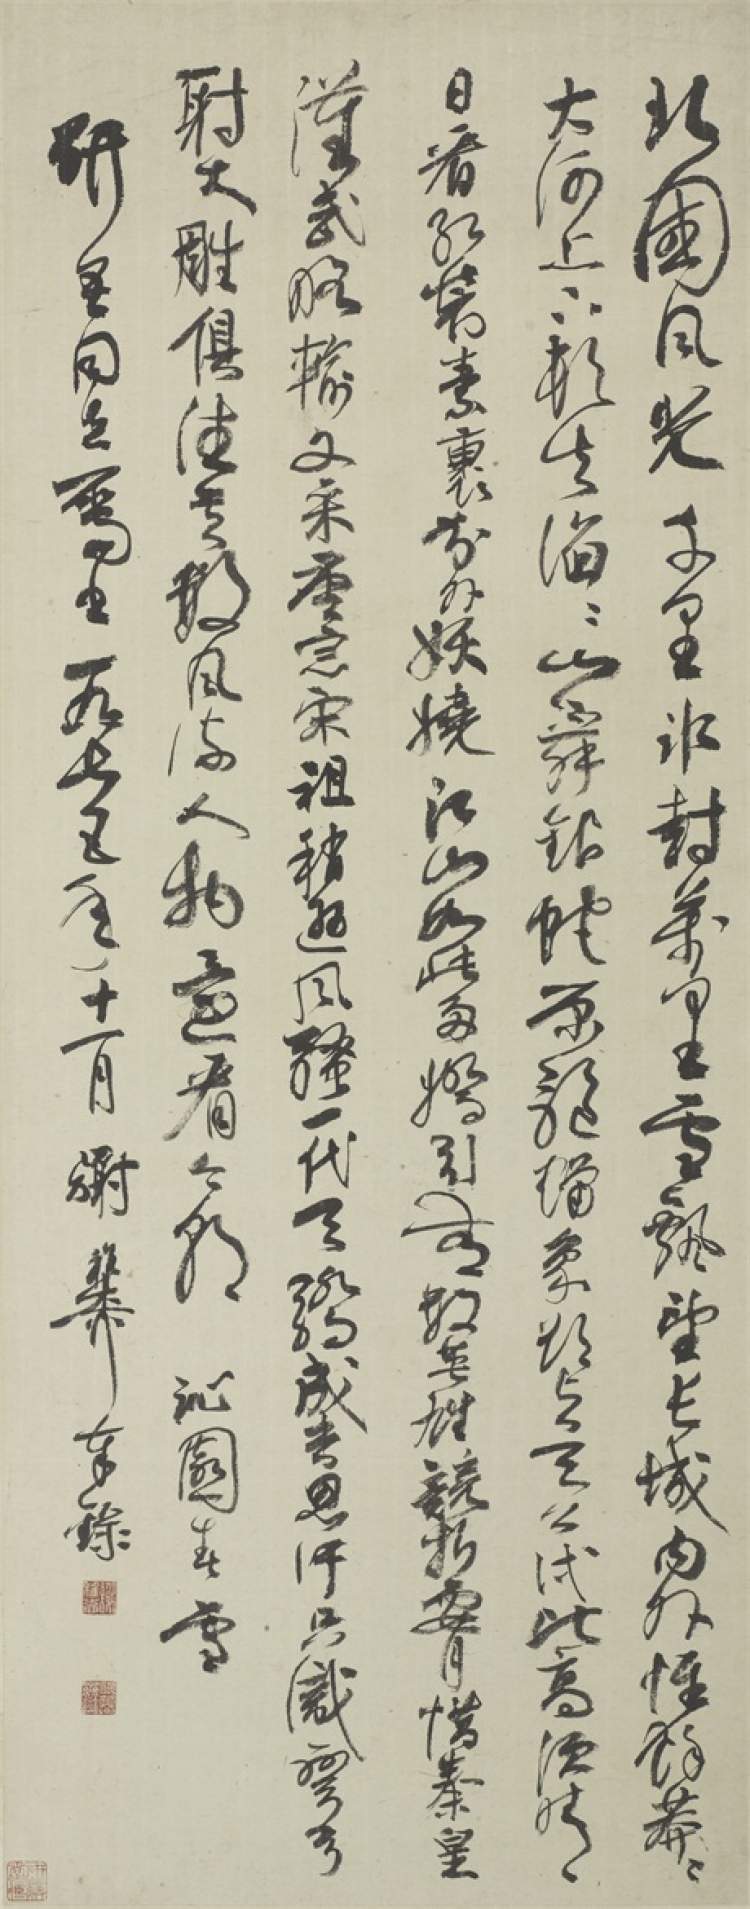 北國風光千里冰封萬里雪飄望長城內外惟餘莽〻
大河上下頓失滔〻山舞銀蛇原驅蠟象欲與天公試比高須晴
日看紅裝素裹分外妖嬈江山如此多嬌引無數英雄競折腰惜秦皇
漢武略輸文采唐宗宋祖稍遜風騷一代天驕成吉思汗只識彎弓
射大雕俱往矣數風流人物還看今朝 沁園春 雪
研吾同志屬 一九七五年十一月 謝稚奉錄